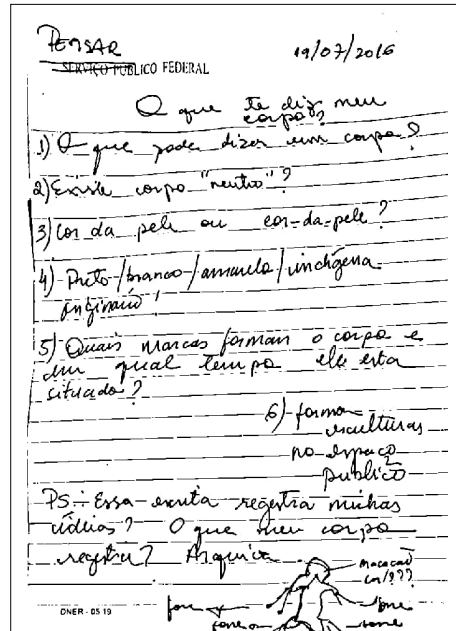 PENSAR
19/07/2016
SERVIÇO PÚBLICO FEDERAL
O que te diz meu
corpo?
1) O que pode dizer um corpo?
2) Existe corpo "neutro"?
3) Cor da pele ou cor-da-pele?
4) Preto/branco/amarelo/indígena
originário!
5) Quais marcas formam o corpo e
em qual tempo ele esta
situado?
6) forma
esculturas
no espaço
público
PS: Essa escrita registra minhas
idéias? O que meu corpo
registra? Arquiva
macacão
cor/???
DNER - 05 19
fone
fone
fone